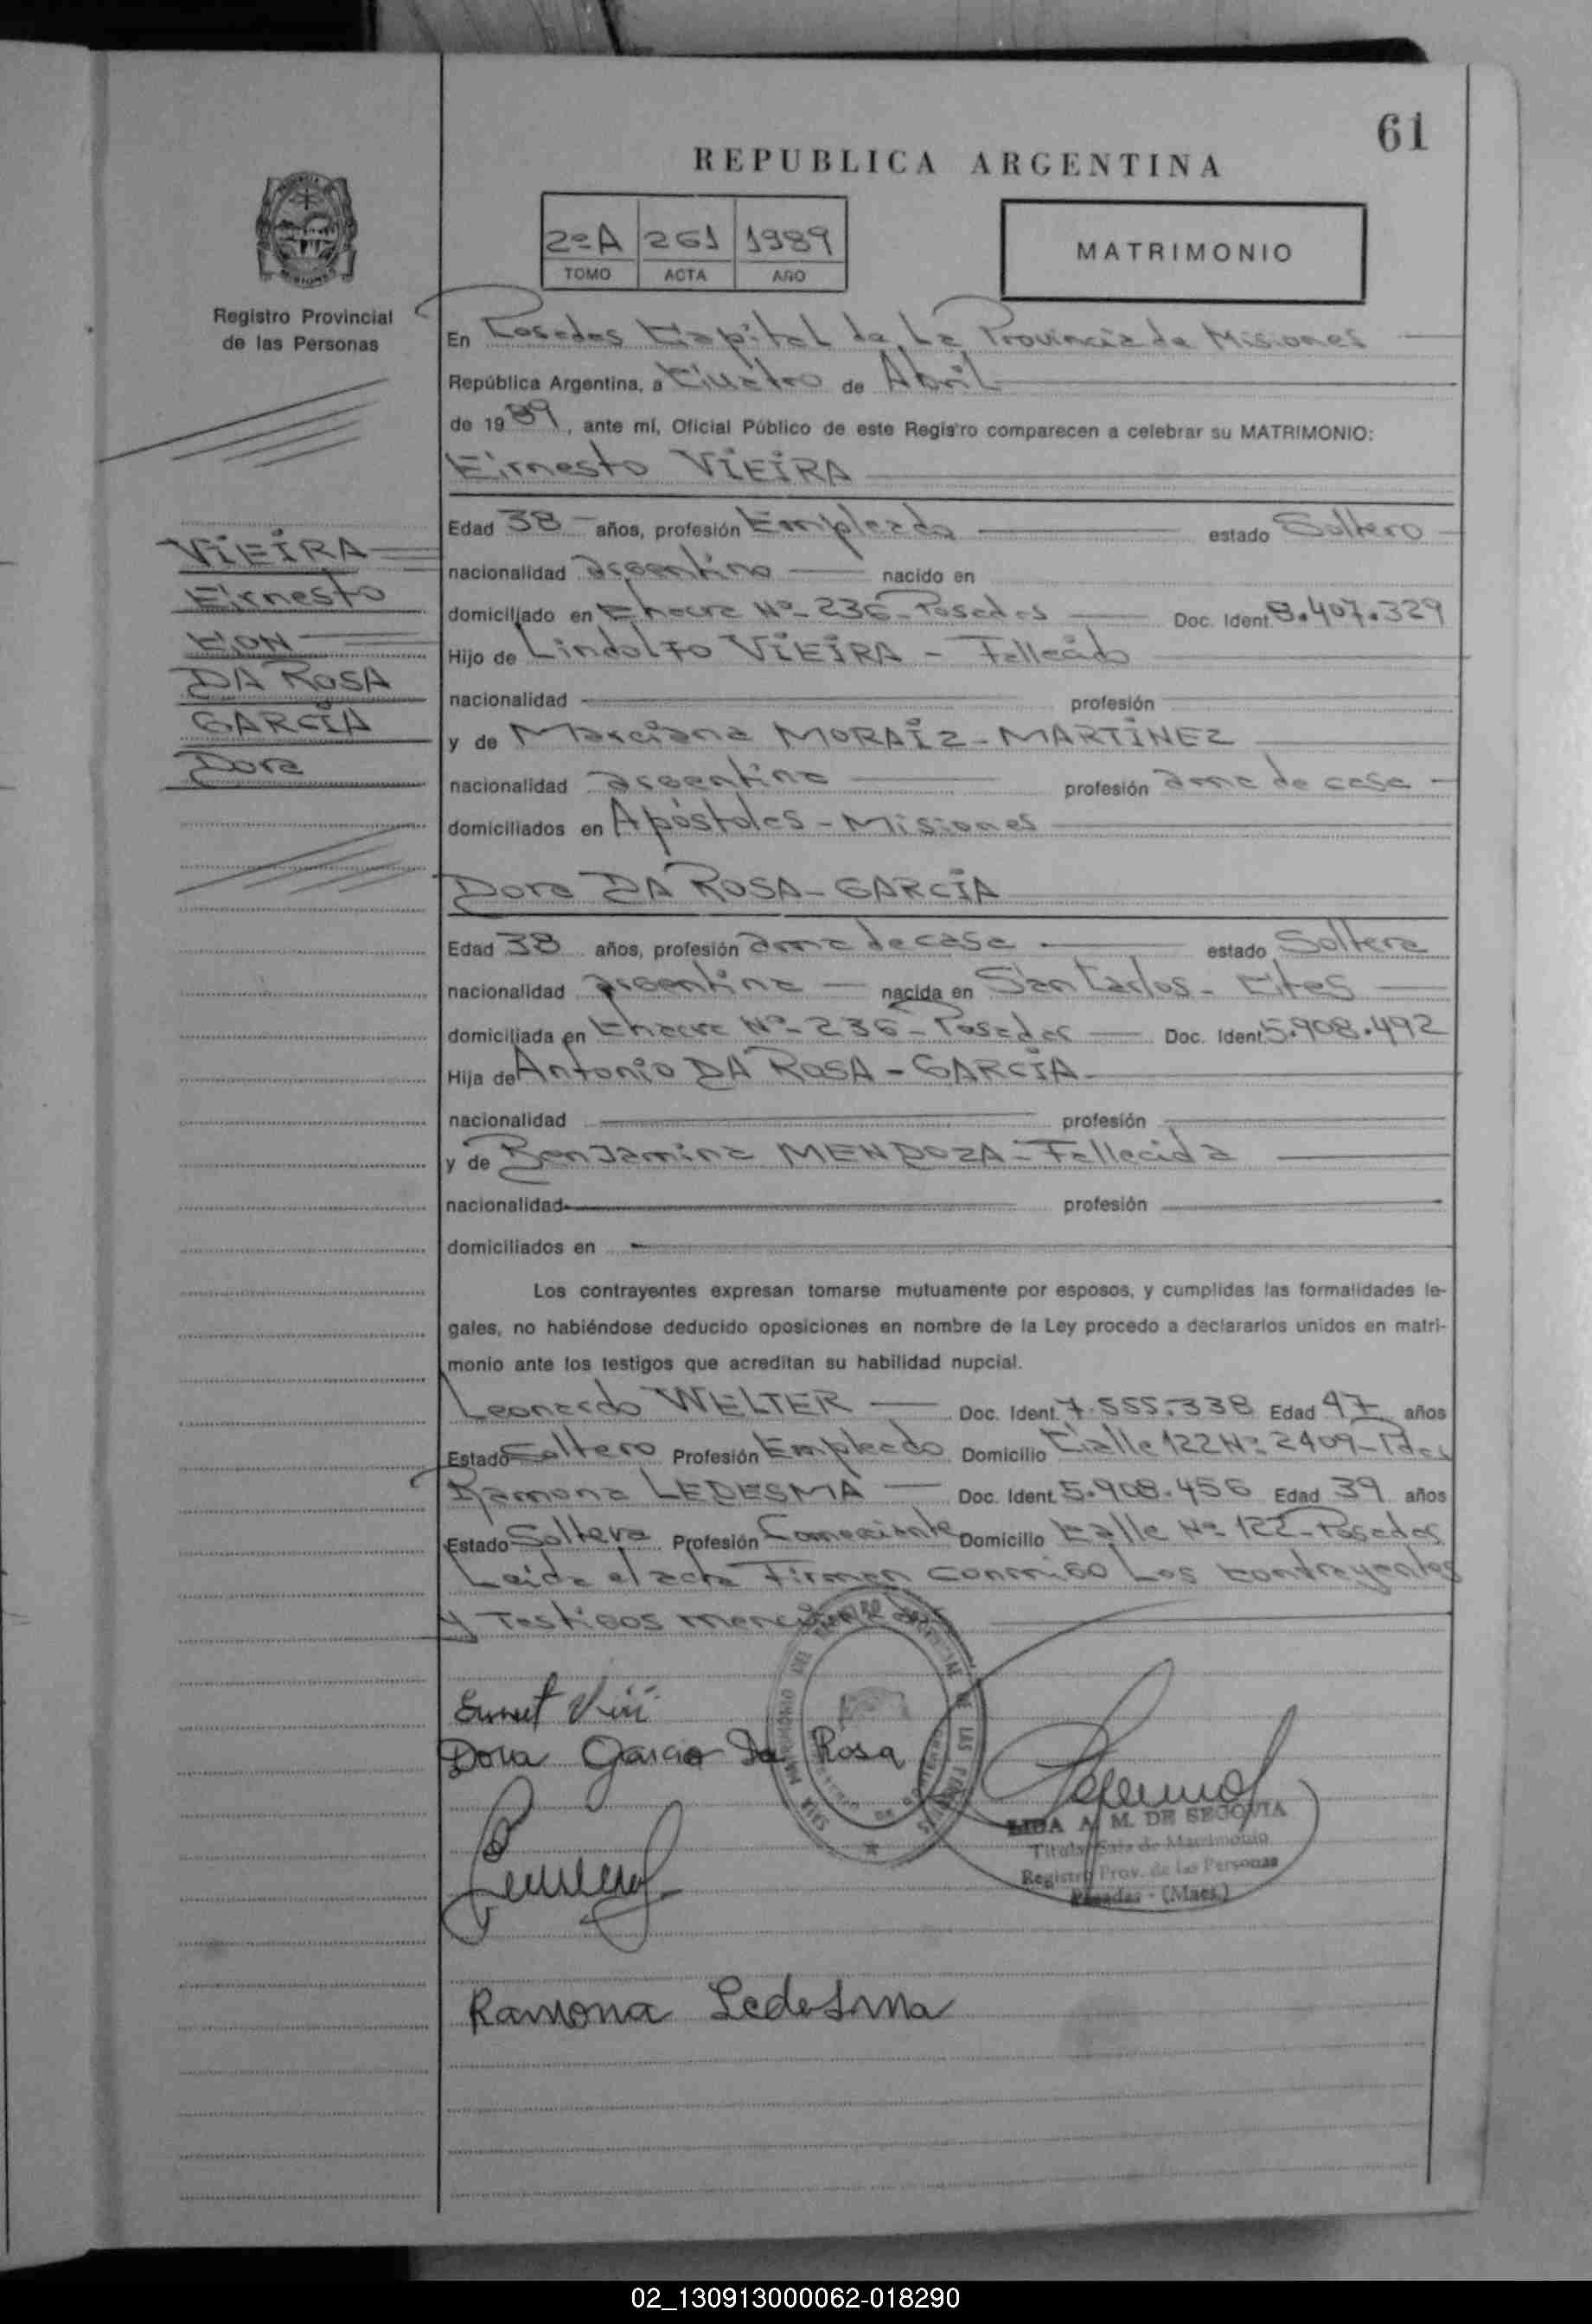 61
REPUBLICA ARGENTINA
2ºA 261 1989
TOMO ACTA AÑO
MATRIMONIO
Registro Provincial
de las Personas
En Posadas Capital de La Provincia de Misiones
República Argentina, a Cuatro de Abril
de 1989, ante mí, Oficial Público de este Registro comparecen a celebrar su MATRIMONIO:
Ernesto VIEIRA
Edad 38 años, profesión Empleado estado Soltero
nacionalidad argentino nacido en
domiciliado en Chacra Nº 236 - Posadas Doc. Ident 8.407.329
Hijo de Lindolfo VIEIRA - Fallecido
nacionalidad profesión
y de Marciana MORAIZ - MARTINEZ
nacionalidad argentina profesión ama de casa
domiciliados en Apóstoles - Misiones
VIEIRA
Ernesto
CON
DA ROSA
GARCIA
Dora
Dora DA ROSA - GARCIA
Edad 38 años, profesión ama de casa estado Soltera
nacionalidad argentina nacida en San Carlos - Ctes
domiciliada en Chacra Nº 236 - Posadas Doc. Ident 5.908.492
Hija de Antonio DA ROSA - GARCIA
nacionalidad profesión
y de Benjamina MENDOZA - Fallecida
nacionalidad profesión
domiciliados en
Los contrayentes expresan tomarse mutuamente por esposos, y cumplidas las formalidades le-
gales, no habiéndose deducido oposiciones en nombre de la Ley procedo a declararlos unidos en matri-
monio ante los testigos que acreditan su habilidad nupcial.
Leonardo WELTER Doc. Ident. 7.555.338 Edad 47 años
Estado Soltero Profesión Empleado Domicilio Calle 122 Nº 2409 - Pdas
Ramona LEDESMA Doc. Ident. 5.908.456 Edad 39 años
Estado Soltera Profesión Comerciante Domicilio Calle Nº 122 - Posadas
Leida el acta Firman conmigo Los contrayentes
y Testigos mencionados
Dora Garcia Da Rosa
LIDA A. M. DE SEGOVIA
Titular Sala de Matrimonio
Registro Prov. de las Personas
Posadas - (Mnes.)
Ramona Ledesma
02_130913000062-018290